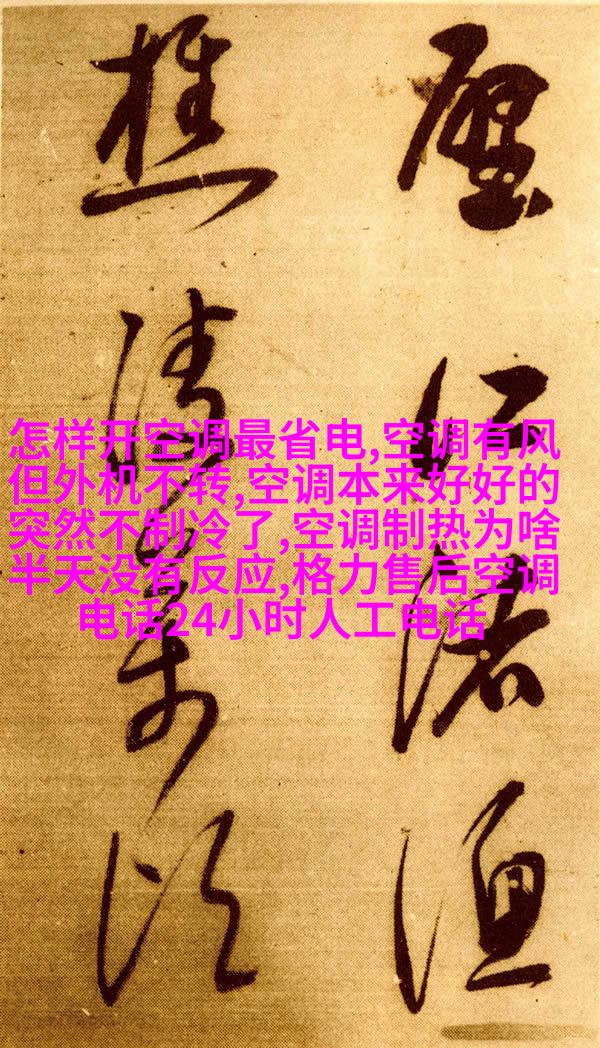 江渚漁
樵
怎样开空调最省电,空调有风
但外机不转,空调本来好好的
突然不制冷了,空调制热为啥
半天没有反应,格力售后空调
电话24小时人工电话